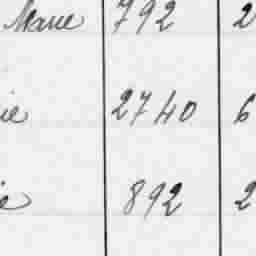 Marie 792 2
ie 2740 6
e 892 2